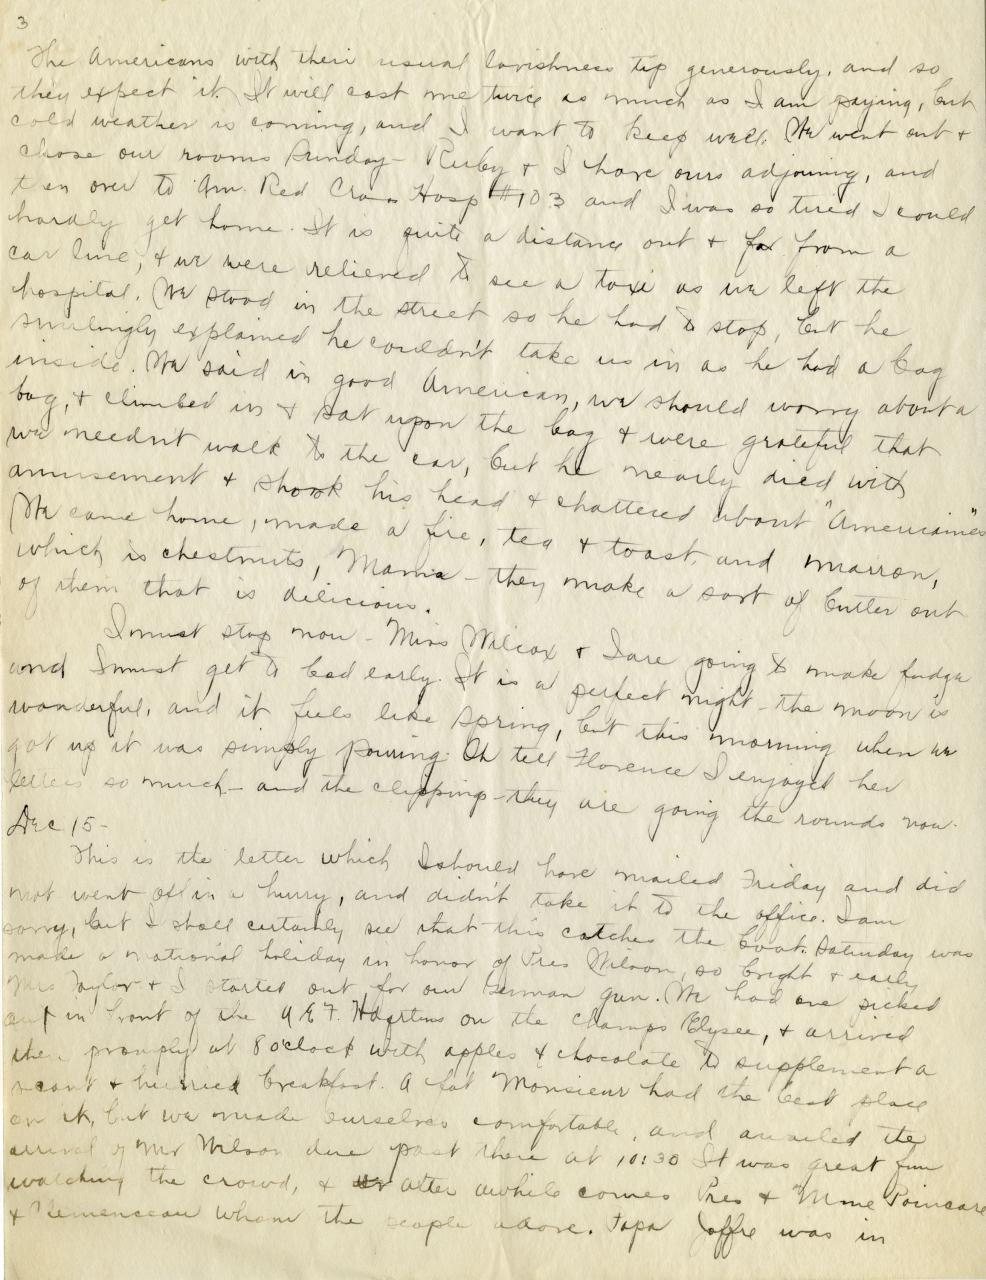 3
The Americans with their usual lavishness tip generously, and so
they expect it. It will cost me twice as much as I am paying, but
cold weather is coming, and I want to keep well. We went out +
chose our rooms Sunday - Ruby + I have ours adjoining, and
then over to Am. Red Cross Hosp #103 and I was so tired I could
hardly get home. It is quite a distance out + far from a
car line, + we were relieved to see a taxi as we left the
hospital. We stood in the street so he had to stop, but he
smilingly explained he couldn't take us in as he had a bag
inside. We said in good American, we should worry about a
bag, + climbed in + sat upon the bag + were grateful that
we needn't walk to the car, but he nearly died with
amusement + shook his head + chattered about "Americaines"
We came home, made a fire, tea + toast, and marron,
which is chestnuts, Mama - they make a sort of butter out
of them that is dilicious.
I must stop now - Miss Wilcox + I are going to make fudge
and I must get to bed early. It is a perfect night - the moon is
wonderful, and it feels like spring, but this morning when we
got up it was simply pouring. Oh tell Florence I enjoyed her
letters so much - and the clippings - they are going the rounds now.
Dec 15 -
This is the letter which I should have mailed Friday and did
not went off in a hurry, and didn't take it to the office. I am
sorry, but I shall certainly see that this catches the boat. Saturday was
make a national holiday in honor of Pres Wilson, so bright + early
Mrs Taylor + I started out for our German gun. We had one picked
out in front of the A.E.F. Hdqrtrs on the Champs Elysee, + arrived
there promply at 8 o'clock with apples + chocolate to supplement a
scant + hurried breakfast. A fat Monsieur had the best place
on it, but we made ourselves comfortable, and awaited the
arrival of Mr Wilson due past there at 10:30 It was great fun
watching the crowd, + after awhile comes Pres + Mme Poincare
+ Clemenceau whom the people adore. Papa Joffre was in